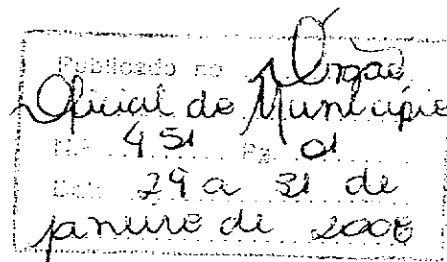 Publicado no Órgão
Oficial do Município
Nº 451 Pg. 01
Dat. 29 a 31 de
janeiro de 2006